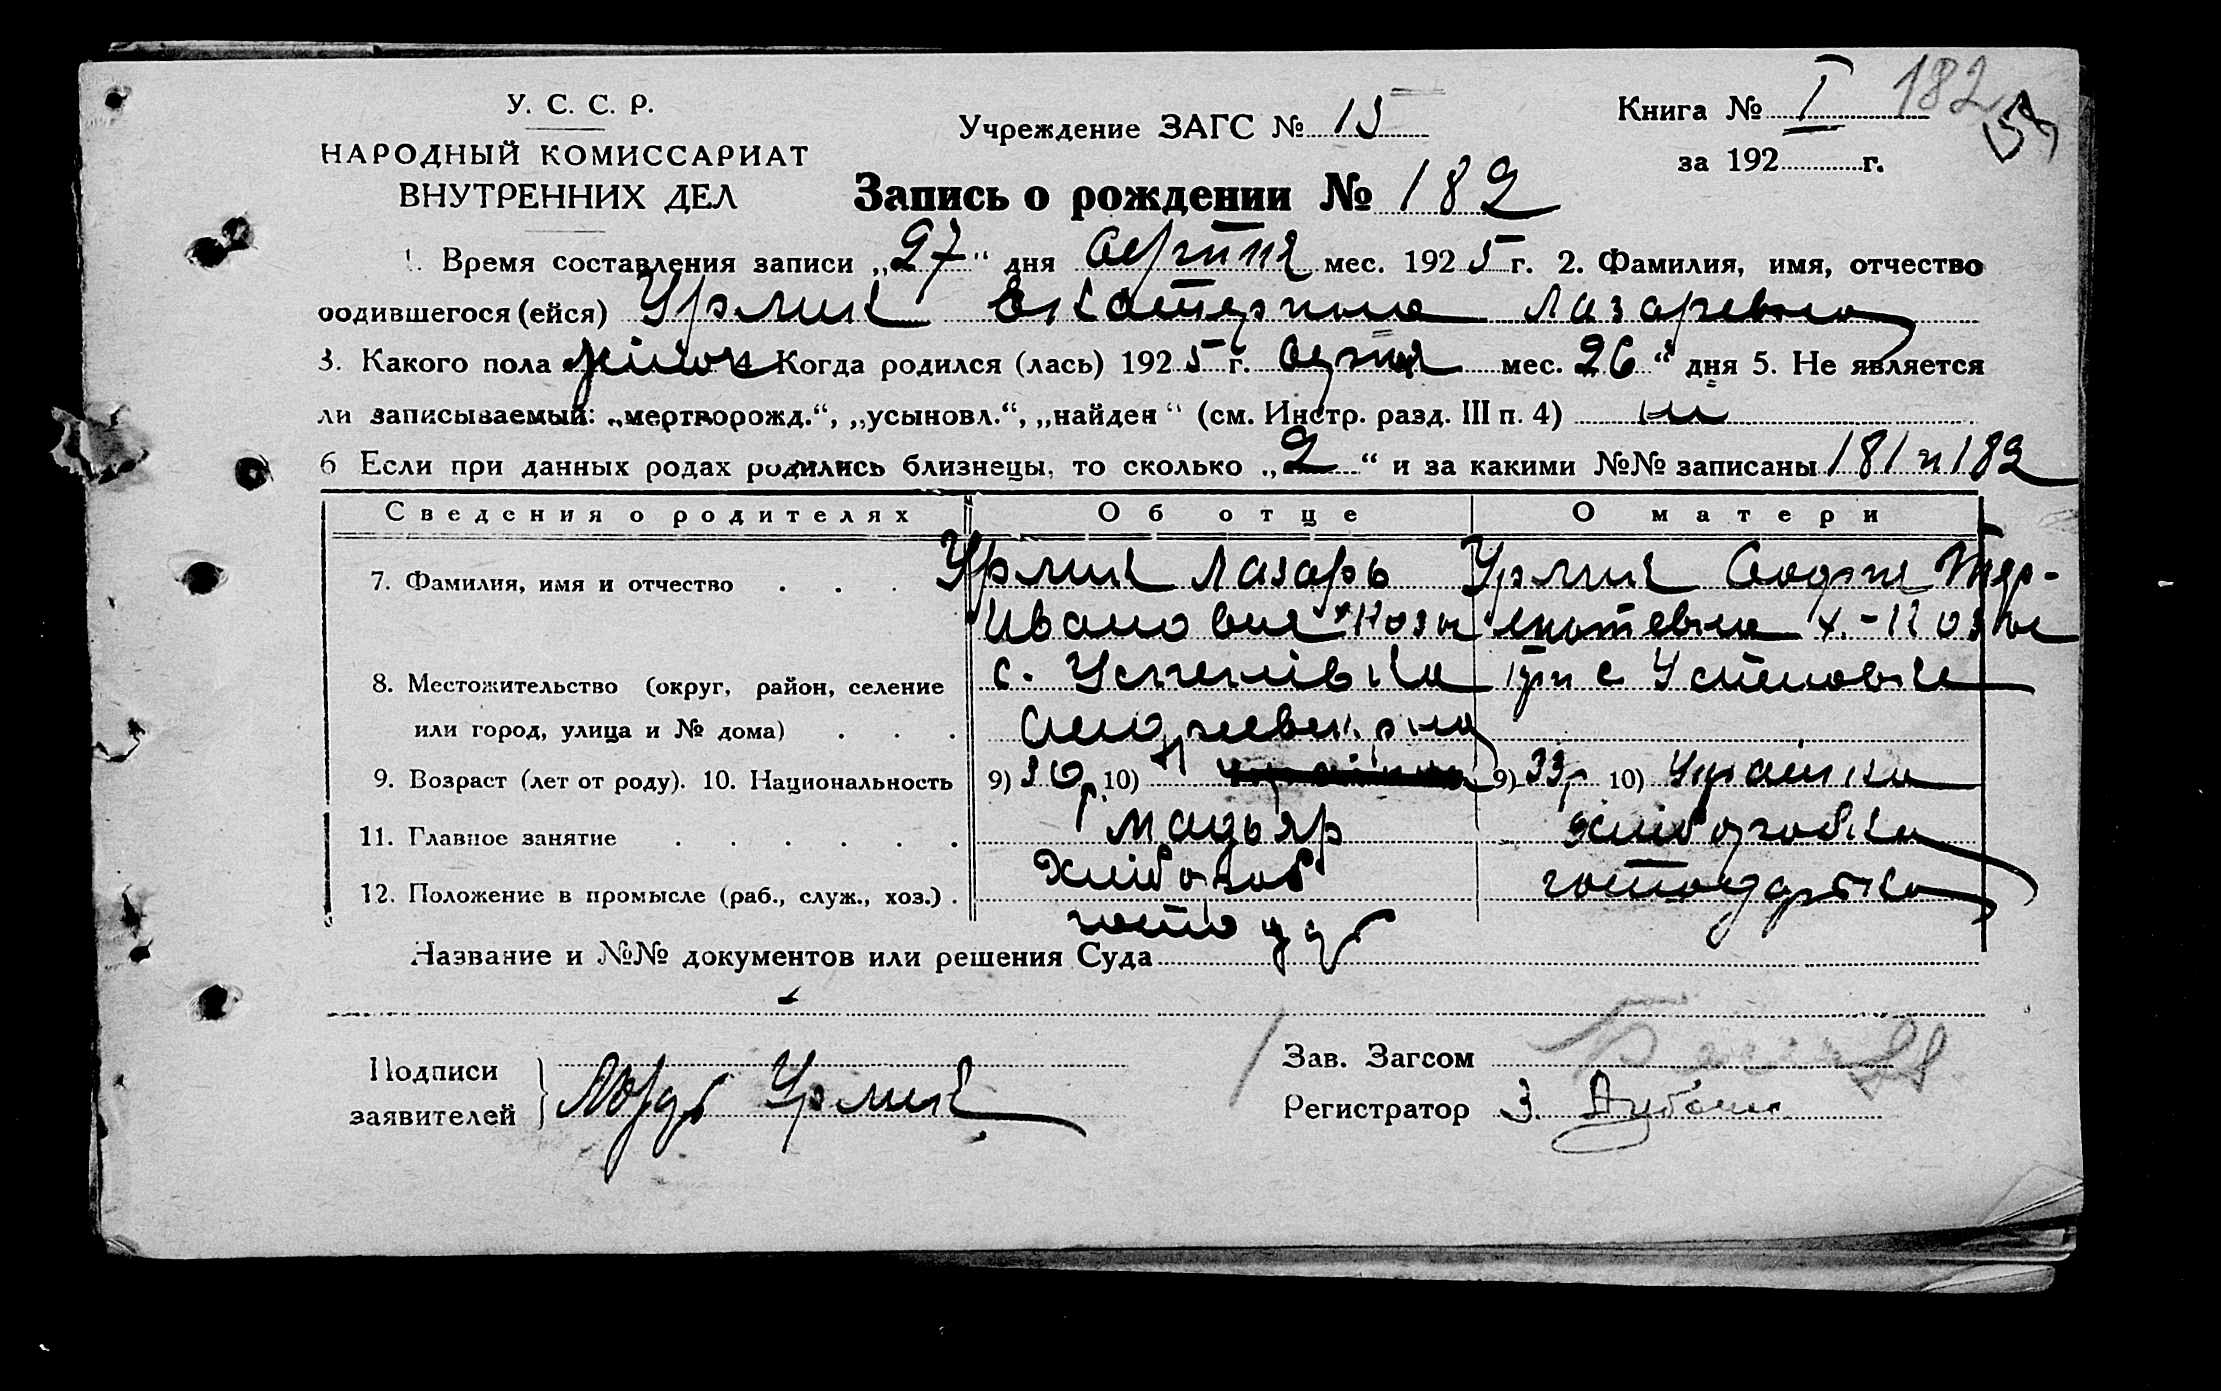 У. С. С. Р.
НАРОДНЫЙ КОМИССАРИАТ
ВНУТРЕННИХ ДЕЛ
Учреждение ЗАГС № 15
Книга № I 182
за 192 г.
Запись о рождении № 182
1. Время составления записи „27“ дня серпня мес. 1925 г. 2. Фамилия, имя, отчество
родившегося (ейся) Урлик Екатерина Лазаревна
3. Какого пола жіноч 4. Когда родился (лась) 1925 г. серпня мес. 26 “ дня 5. Не является
ли записываемый: „мертворожд.“, „усыновл.“, „найден“ (см. Инстр. разд. III п. 4) ні
6 Если при данных родах родились близнецы, то сколько „2“ и за какими №№ записаны 181 и 182
Сведения о родителях Об отце О матери
7. Фамилия, имя и отчество . . . Урлик Лазарь Урлик
Иванович
8. Местожительство (округ, район, селение с.
или город, улица и № дома) . . .
9. Возраст (лет от роду). 10. Национальность 9) 30р 10) 9) 33р 10) Украінка
мадьяр
11. Главное занятие . . . . . . хлібороб хліборобка
12. Положение в промысле (раб., служ., хоз.) . господарка
господар
Название и №№ документов или решения Суда
Подписи
заявителей Урлик
Зав. Загсом
Регистратор З.